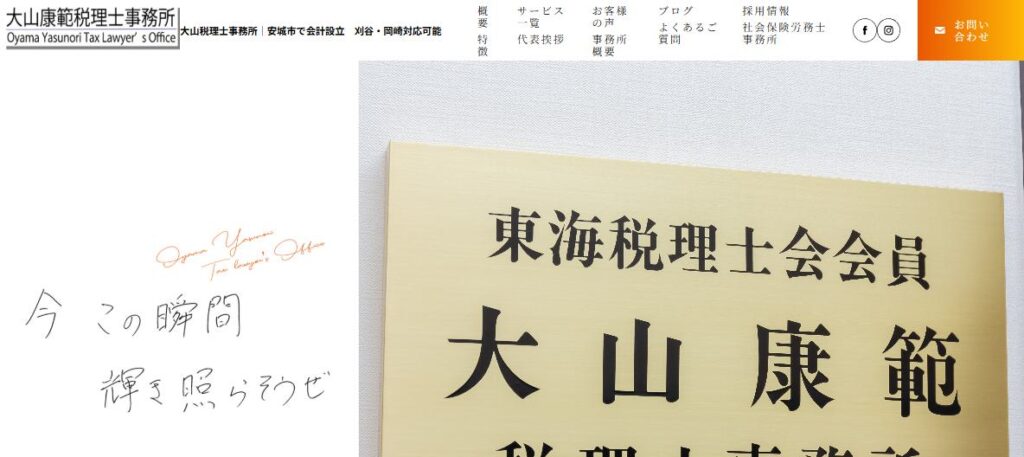 大山康範税理士事務所
Oyama Yasunori Tax Lawyer's Office
大山税理士事務所｜安城市で会計設立　刈谷・岡崎対応可能
概要
サービス一覧
お客様の声
ブログ
採用情報
特徴
代表挨拶
事務所概要
よくあるご質問
社会保険労務士事務所
お問い合わせ
Oyama Yasunori
Tax lawyer's Office
今 この瞬間
輝き照らそうぜ
東海税理士会会員
大山康範
税理士事務所